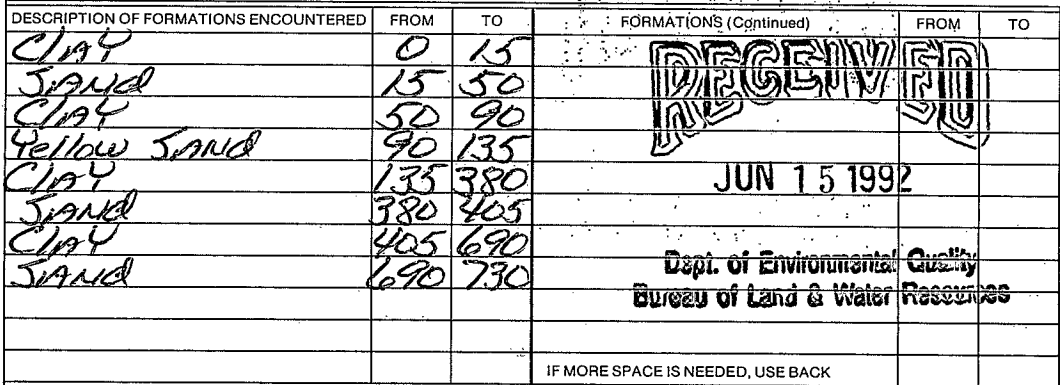 DESCRIPTION OF FORMATIONS ENCOUNTERED FROM TO
Clay 0 15
Sand 15 50
Clay 50 90
Yellow Sand 90 135
Clay 135 380
Sand 380 405
Clay 405 690
Sand 690 730
FORMATIONS (Continued) FROM TO
RECEIVED
JUN 15 1992
Dept. of Environmental Quality
Bureau of Land & Water Resources
IF MORE SPACE IS NEEDED, USE BACK